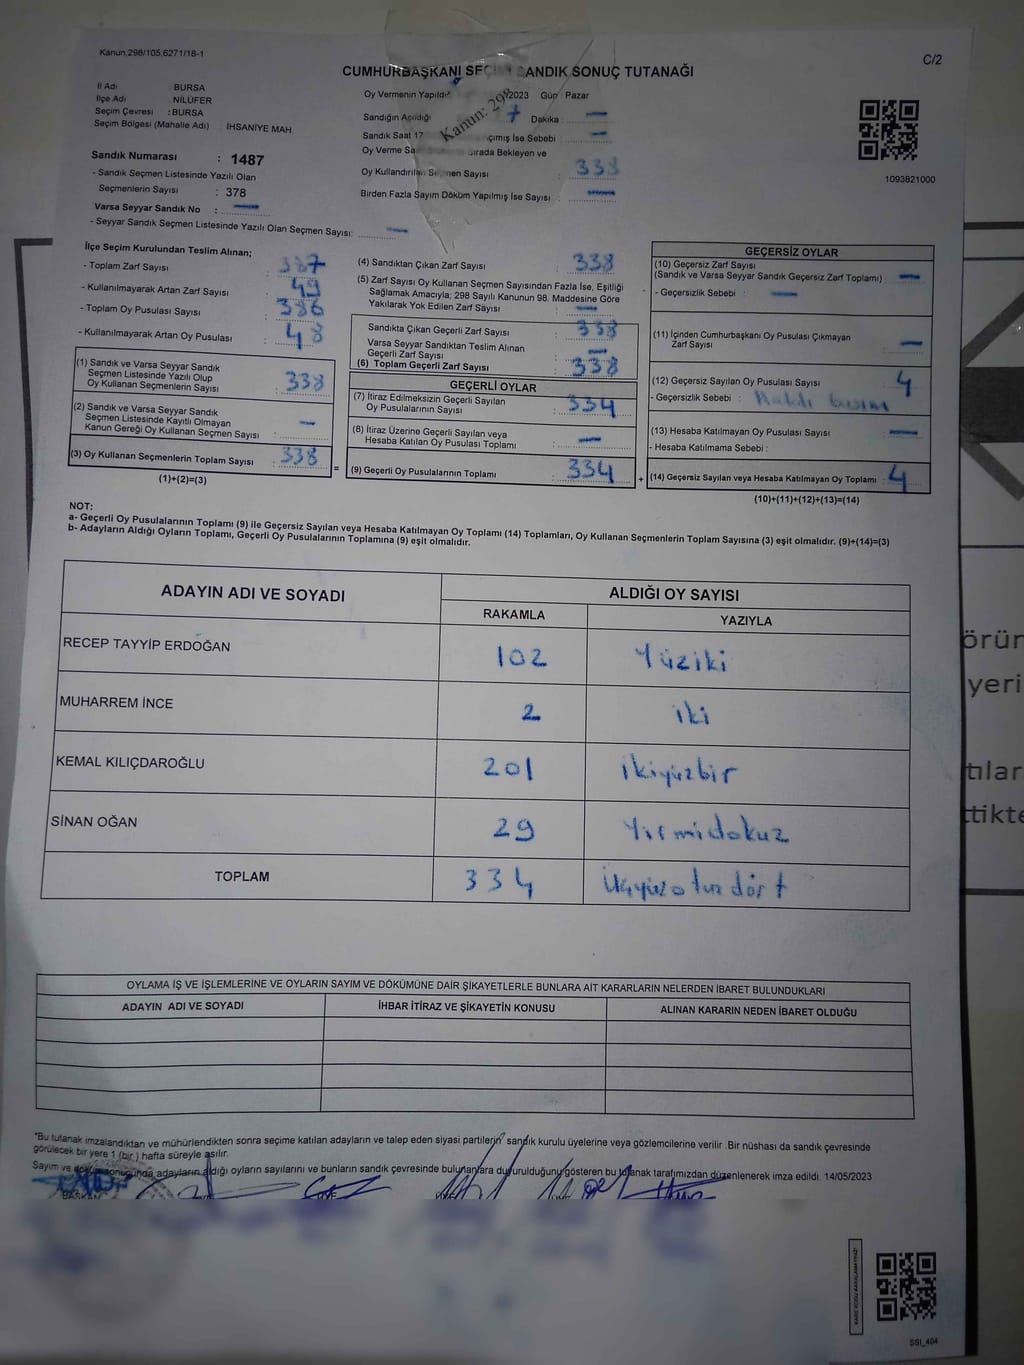 Kanun,298/105,6271/18-1
C/2
CUMHURBAŞKANI SEÇİM SANDIK SONUÇ TUTANAĞI
İl Adı BURSA
İlçe Adı NİLÜFER
Seçim Çevresi : BURSA
Seçim Bölgesi (Mahalle Adı) İHSANİYE MAH
Sandık Numarası : 1487
- Sandık Seçmen Listesinde Yazılı Olan
Seçmenlerin Sayısı : 378
Varsa Seyyar Sandık No : —
- Seyyar Sandık Seçmen Listesinde Yazılı Olan Seçmen Sayısı: —
Oy Vermenin Yapıldı 2023 Gün Pazar
Sandığın Açıldığı Dakika : —
Sandık Saat 17 çımış İse Sebebi : —
Oy Verme Sa Sırada Bekleyen ve
Oy Kullandırılan Seçmen Sayısı : 338
Birden Fazla Sayım Döküm Yapılmış İse Sayısı : —
Kanun: 298
1093821000
İlçe Seçim Kurulundan Teslim Alınan;
- Toplam Zarf Sayısı : 387
- Kullanılmayarak Artan Zarf Sayısı : 49
- Toplam Oy Pusulası Sayısı : 386
- Kullanılmayarak Artan Oy Pusulası : 48
(1) Sandık ve Varsa Seyyar Sandık
Seçmen Listesinde Yazılı Olup
Oy Kullanan Seçmenlerin Sayısı : 338
(2) Sandık ve Varsa Seyyar Sandık
Seçmen Listesinde Kayıtlı Olmayan
Kanun Gereği Oy Kullanan Seçmen Sayısı : —
(3) Oy Kullanan Seçmenlerin Toplam Sayısı : 338
(1)+(2)=(3)
(4) Sandıktan Çıkan Zarf Sayısı : 338
(5) Zarf Sayısı Oy Kullanan Seçmen Sayısından Fazla İse, Eşitliği
Sağlamak Amacıyla; 298 Sayılı Kanunun 98. Maddesine Göre
Yakılarak Yok Edilen Zarf Sayısı : —
Sandıkta Çıkan Geçerli Zarf Sayısı : 338
Varsa Seyyar Sandıktan Teslim Alınan
Geçerli Zarf Sayısı : —
(6) Toplam Geçerli Zarf Sayısı : 338
GEÇERLİ OYLAR
(7) İtiraz Edilmeksizin Geçerli Sayılan
Oy Pusulalarının Sayısı : 334
(8) İtiraz Üzerine Geçerli Sayılan veya
Hesaba Katılan Oy Pusulası Toplamı : —
= (9) Geçerli Oy Pusulalarının Toplamı : 334 +
GEÇERSİZ OYLAR
(10) Geçersiz Zarf Sayısı
(Sandık ve Varsa Seyyar Sandık Geçersiz Zarf Toplamı) : —
- Geçersizlik Sebebi : —
(11) İçinden Cumhurbaşkanı Oy Pusulası Çıkmayan
Zarf Sayısı : —
(12) Geçersiz Sayılan Oy Pusulası Sayısı : 4
- Geçersizlik Sebebi :
(13) Hesaba Katılmayan Oy Pusulası Sayısı : —
- Hesaba Katılmama Sebebi :
(14) Geçersiz Sayılan veya Hesaba Katılmayan Oy Toplamı : 4
(10)+(11)+(12)+(13)=(14)
NOT:
a- Geçerli Oy Pusulalarının Toplamı (9) ile Geçersiz Sayılan veya Hesaba Katılmayan Oy Toplamı (14) Toplamları, Oy Kullanan Seçmenlerin Toplam Sayısına (3) eşit olmalıdır. (9)+(14)=(3)
b- Adayların Aldığı Oyların Toplamı, Geçerli Oy Pusulalarının Toplamına (9) eşit olmalıdır.
ADAYIN ADI VE SOYADI ALDIĞI OY SAYISI
RAKAMLA YAZIYLA
RECEP TAYYİP ERDOĞAN 102 Yüziki
MUHARREM İNCE 2 iki
KEMAL KILIÇDAROĞLU 201 ikiyüzbir
SİNAN OĞAN 29 Yirmidokuz
TOPLAM 334 Üçyüzotuzdört
OYLAMA İŞ VE İŞLEMLERİNE VE OYLARIN SAYIM VE DÖKÜMÜNE DAİR ŞİKAYETLERLE BUNLARA AİT KARARLARIN NELERDEN İBARET BULUNDUKLARI
ADAYIN ADI VE SOYADI İHBAR İTİRAZ VE ŞİKAYETİN KONUSU ALINAN KARARIN NEDEN İBARET OLDUĞU
*Bu tutanak imzalandıktan ve mühürlendikten sonra seçime katılan adayların ve talep eden siyasi partilerin sandık kurulu üyelerine veya gözlemcilerine verilir. Bir nüshası da sandık çevresinde
görülecek bir yere 1 (bir ) hafta süreyle asılır.
Sayım ve döküm sonucunda adayların aldığı oyların sayılarını ve bunların sandık çevresinde bulunanlara duyurulduğunu gösteren bu tutanak tarafımızdan düzenlenerek imza edildi. 14/05/2023
BAŞKAN
SSI_404
örün
yeri
tılar
ttikte